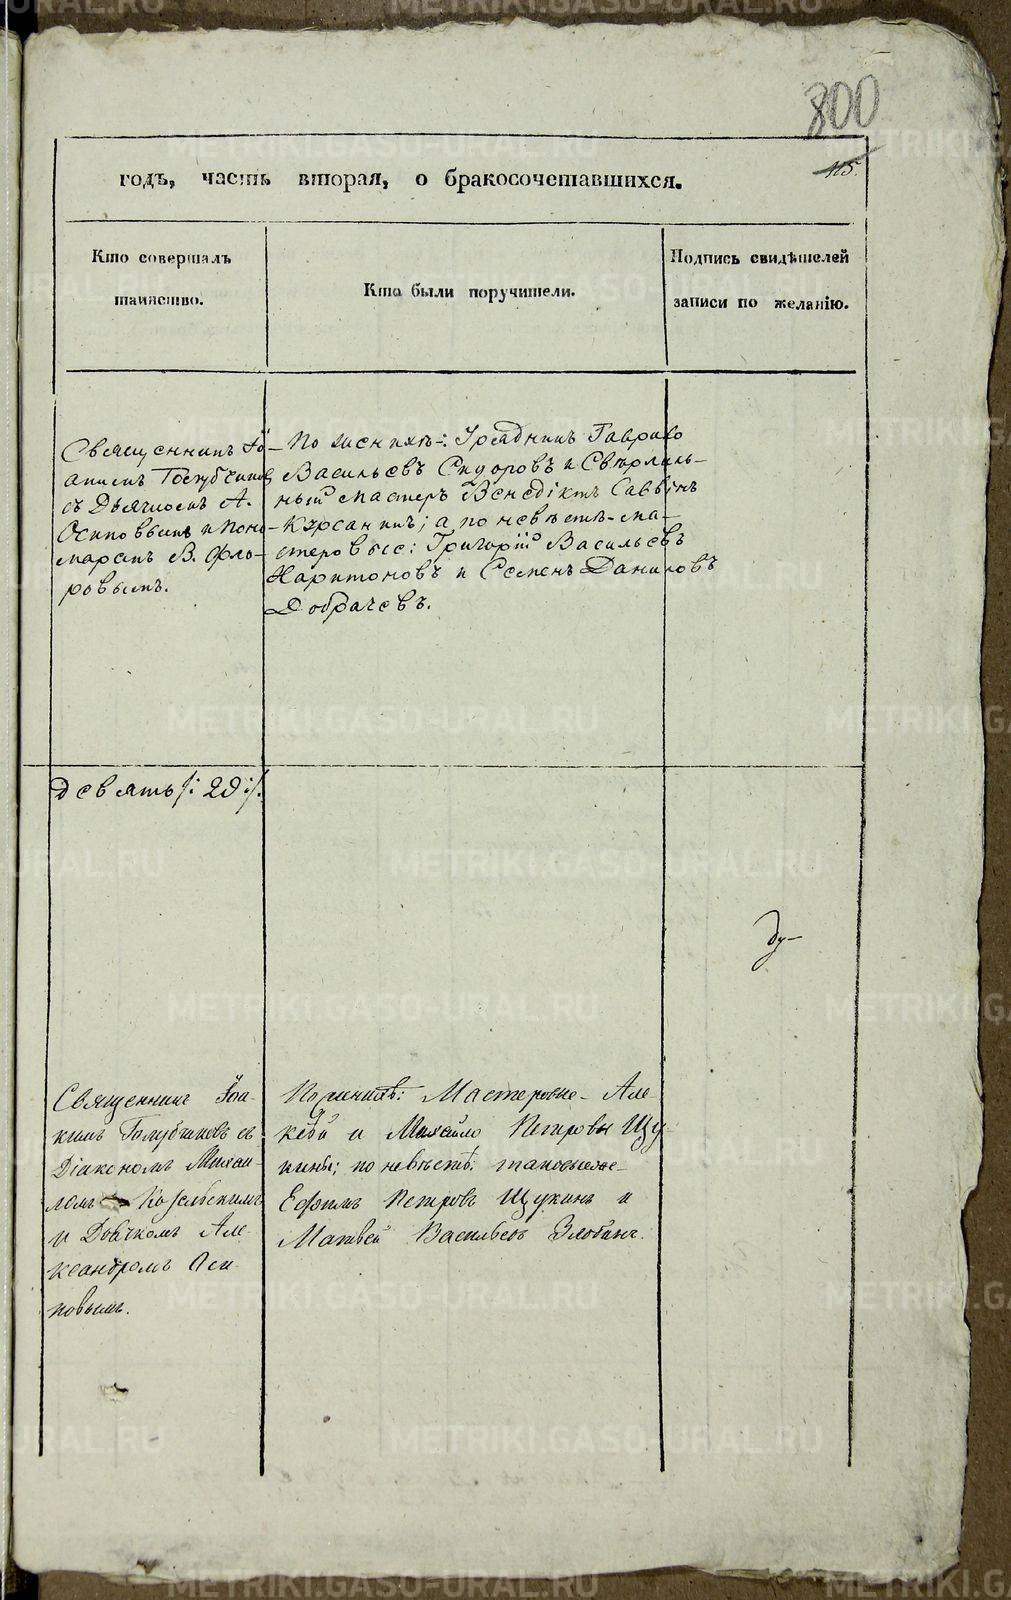 800
115.
годъ, часть вторая, о бракосочетавшихся.
Кто совершалъ
таинство.
Кто были поручители.
Подпись свидѣтелей
записи по желанію.
Священникъ Іо-
акимъ Голубчиковъ
съ Дьячкомъ А.
Осиповымъ и Поно-
маремъ В. Фло-
ровымъ.
По женихѣ: Урядникъ Гаврило
Васильевъ Сидоровъ и Сверлиль-
ный мастеръ Венедіктъ Саввинъ
а по невѣстѣ ма-
стеровые: Григорій Васильевъ
Харитоновъ и Семенъ Даниловъ
Добрачевъ.
девять /: 29 :/.
Священникъ Іоа-
кимъ Голубчиковъ съ
Діакономъ Михаи-
ломъ
и Дьячкомъ Але
ксандромъ Оси
повымъ.
По женихѣ: Мастеровые Але
ксѣй и Михайло Петровы Щу
кины; по невѣстѣ: таковые же
Ефимъ Петровъ Щукинъ и
Матвей Васильевъ Злобинъ.
METRIKI.GASO-URAL.RU